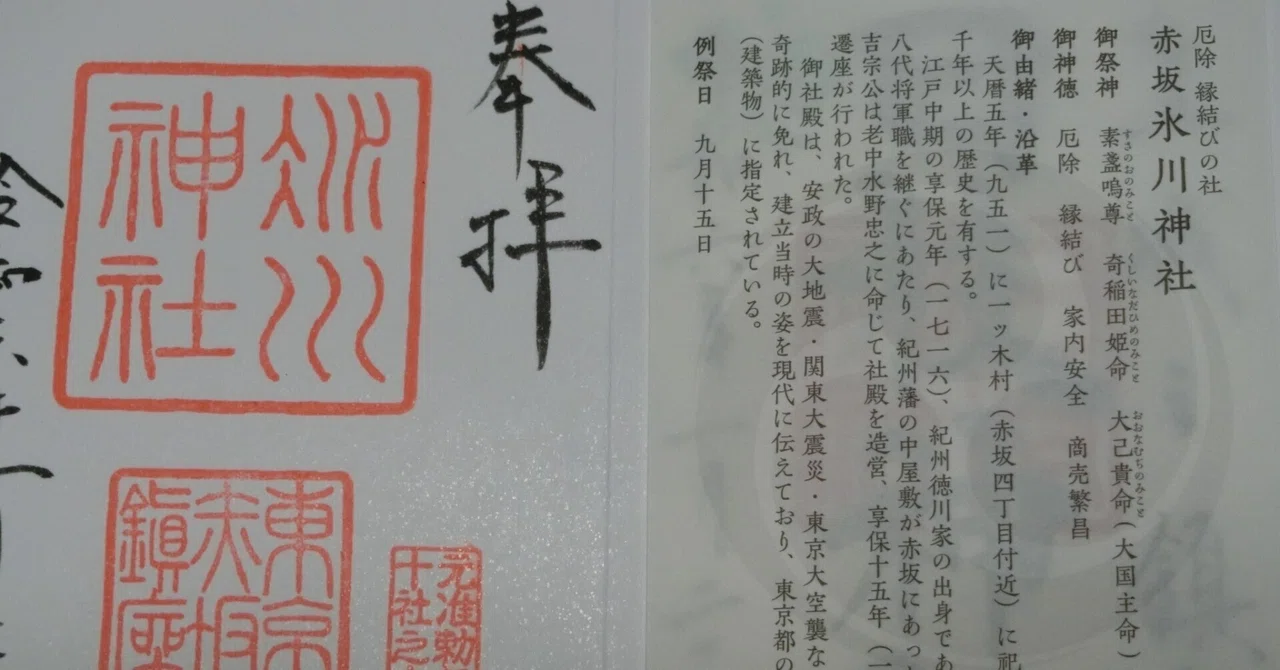 厄除 縁結びの社
赤坂氷川神社
御祭神 素盞嗚尊 奇稲田姫命 大己貴命(大国主命)
すさのおのみこと くしいなだひめのみこと おおなむぢのみこと
御神徳 厄除 縁結び 家内安全 商売繁昌
御由緒・沿革
天暦五年(九五一)に一ッ木村(赤坂四丁目付近)に祀
千年以上の歴史を有する。
江戸中期の享保元年(一七一六)、紀州徳川家の出身であ
八代将軍職を継ぐにあたり、紀州藩の中屋敷が赤坂にあっ
吉宗公は老中水野忠之に命じて社殿を造営、享保十五年(一
遷座が行われた。
御社殿は、安政の大地震・関東大震災・東京大空襲な
奇跡的に免れ、建立当時の姿を現代に伝えており、東京都の
(建築物)に指定されている。
例祭日 九月十五日
奉拝
氷川
神社
東京
赤坂
鎮座
元准勅
十社之
令和六年一月